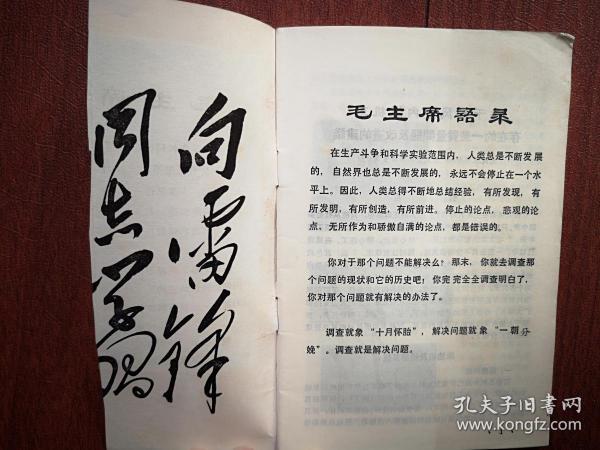 向雷锋
同志学习
毛主席语录
在生产斗争和科学实验范围内，人类总是不断发展
的，自然界也总是不断发展的，永远不会停止在一个水
平上。因此，人类总得不断地总结经验，有所发现，有
所发明，有所创造，有所前进。停止的论点，悲观的论
点，无所作为和骄傲自满的论点，都是错误的。
你对于那个问题不能解决么？那末，你就去调查那
个问题的现状和它的历史吧！你完完全全调查明白了，
你对那个问题就有解决的办法了。
调查就象“十月怀胎”，解决问题就象“一朝分
娩”。调查就是解决问题。
孔夫子旧书网
www.kongfz.com